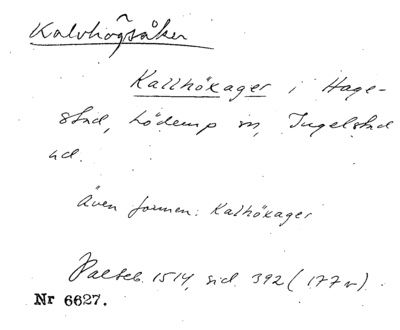 Kalvhögsåker
Kallhöxager i Hage-
stad, Löderup sn, Ingelstad
hd.
Även formen: Kalhöxager
Palteb. 1514, sid. 392 (177 v).
Nr 6627.